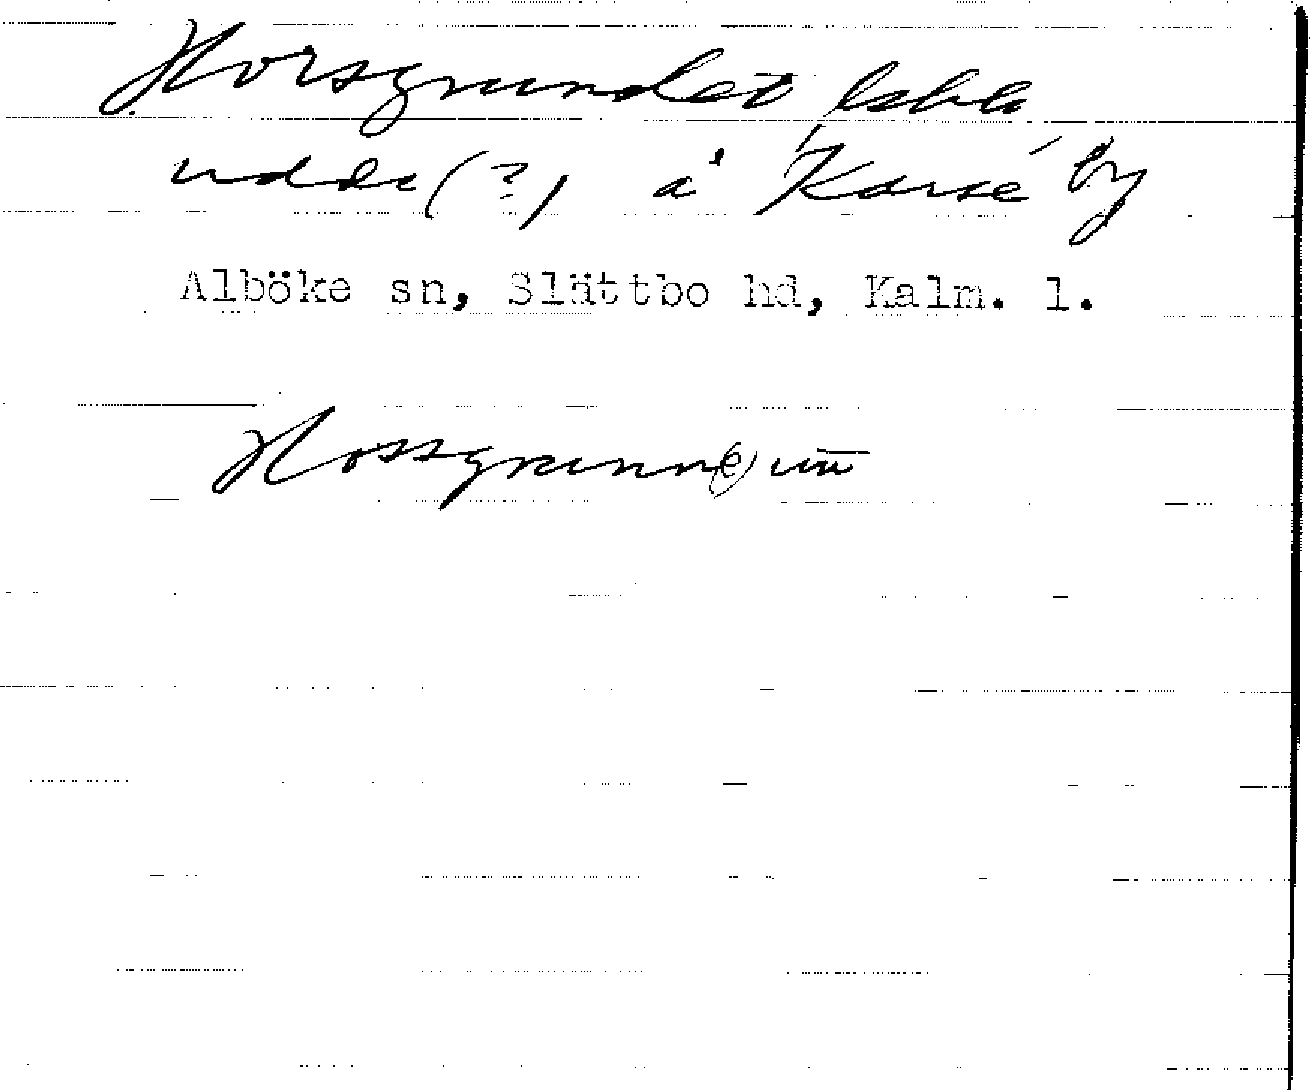 Horsgrundet
udde (?) å Karsé by
Alböke sn, Slättbo hd, Kalm. l.
Hossgrunn(e)